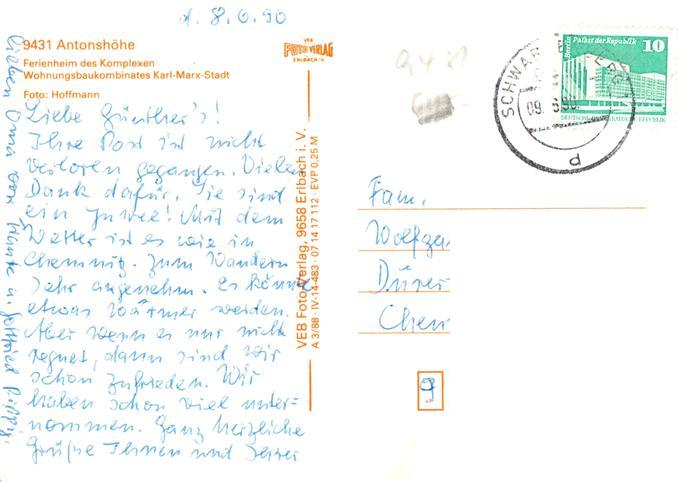 d. 8.6.90
9431 Antonshöhe
Ferienheim des Komplexen
Wohnungsbaukombinates Karl-Marx-Stadt
Foto: Hoffmann
VEB
FOTO VERLAG
ERLBACH/V.
Liebe Günther's!
Ihre Post ist nicht
verloren gegangen. Vielen
Dank dafür, Sie sind
ein Juwel! Mit dem
Wetter ist es wie in
Chemnitz. Zum Wandern
sehr angenehm. Es könnte
etwas wärmer werden.
Aber wenn es nur nicht
regnet, dann sind wir
schon zufrieden. Wir
haben schon viel unter=
nommen. Ganz herzliche
Grüße Ihnen und Ihrer
lieben Oma von u. Gottfried
VEB Foto-Verlag, 9658 Erlbach i. V.
A 3/88 · IV-14-483 · 07 14 17 112 · EVP 0,25 M
94
SCHWARZENBERG
09. 6.90
d
Berlin Palast der Republik
10
DEUTSCHE DEMOKRATISCHE REPUBLIK
Fam.
Wolfga
Dürer
Chem
9